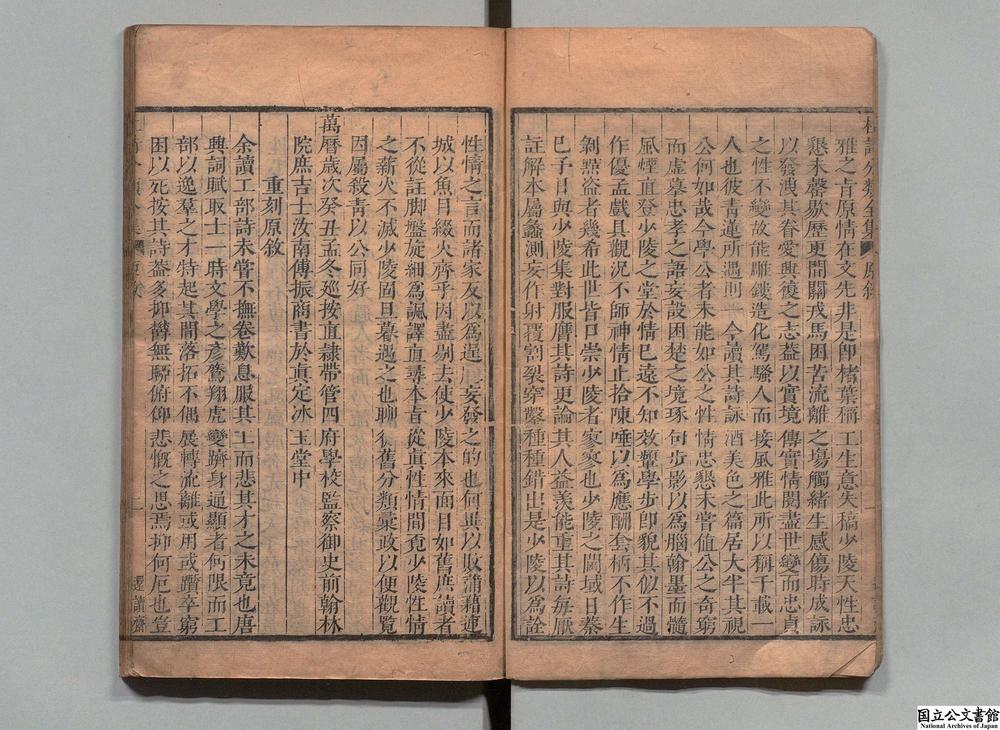 雅之旨原情在文先非是卽楮葉稱工生意失稿少陵天性忠
懇未罄歇歷更間關戎馬困苦流離之場觸緒生感傷時成詠
以發洩其眷愛興復之志葢以實境傳實情閱盡世變而忠貞
之性不變故能雕鎪造化駕騷人而接風雅此所以稱千載一
人也彼青蓮所遇則一今讀其詩詠酒美色之篇居大半其視
公何如哉今學公者未能如公之性情忠懇未嘗值公之奇窮
而虛摹忠孝之語妄設困楚之境琢句步影以爲腦翰墨而髓
風煙直登少陵之堂於情已遠不知效顰學步卽貌其似不過
作優孟戲具觀況不師神情止拾陳唾以爲應酬套柄不作生
剝㸃盜者幾希此世皆口崇少陵者家家也少陵之閫域日蓁
巳予日與少陵集對服膺其詩更論其人益羨能重其詩每厭
註解本屬蠡測妄作射覆割裂穿鑿種種錯出是少陵以爲詮
性情之言而諸家反以爲逞妄發之的也何異以敗蒲藉連
城以魚目綴火齊乎因盡剔去使少陵本來面目如舊庶讀者
不從註脚盤旋細爲諷譯直尋本旨從眞性情間覓少陵性情
之薪火不滅少陵固旦暮遇之也聊從舊分類彙政以便觀覽
因屬殺青以公同好
萬曆歲次癸丑孟冬廵按直隸帶管四府學校監察御史前翰林
院庶吉士汝南傅振商書於眞定冰玉堂中
重刻原敘
余讀工部詩未嘗不撫卷歎息服其工而悲其才之未竟也唐
典詞賦取士一時文學之彦鴌翔虎變躋身通顯者何限而工
部以逸羣之才特起其間落拓不偶展轉流離或用或躓卒窮
困以死按其詩葢多抑鬱無聊俯仰悲慨之思焉抑何厄也豈